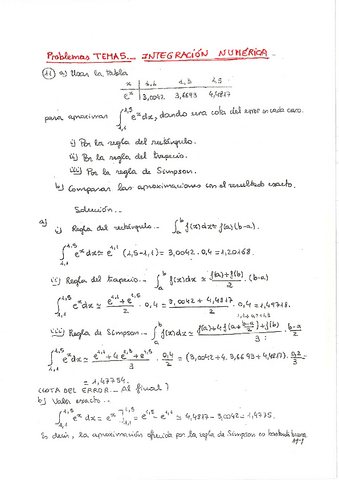 Problemas TEMA5.- INTEGRACIÓN NUMÉRICA.
(11) a) Usar la tabla
x 1,1 1,3 1,5
eˣ 3,0042 3,6693 4,4817
para aproximar ∫₁,₁^1,5 eˣ dx, dando una cota del error en cada caso.
i) Por la regla del rectángulo.
ii) Por la regla del trapecio.
iii) Por la regla de Simpson.
b) Comparar las aproximaciones con el resultado exacto.
Solución.-
a)
i) Regla del rectángulo.- ∫ₐᵇ f(x)dx ≃ f(a)(b-a).
∫₁,₁^1,5 eˣ dx ≃ e^1,1 (1,5-1,1) = 3,0042 · 0,4 = 1,20168.
ii) Regla del trapecio.- ∫ₐᵇ f(x)dx ≃ (f(a)+f(b))/2 · (b-a)
∫₁,₁^1,5 eˣ dx ≃ (e^1,1 + e^1,5)/2 · 0,4 = (3,0042 + 4,4817)/2 · 0,4 = 1,49718.
iii) Regla de Simpson.- ∫ₐᵇ f(x)dx ≃ (f(a)+4f(a+(b-a)/2)+f(b))/3 · (b-a)/2
∫₁,₁^1,5 eˣ dx ≃ (e^1,1 + 4e^1,3 + e^1,5)/3 · 0,4/2 = (3,0042+4·3,6693+4,4817) · 0,2/3 =
= 1,47754.
COTA DEL ERROR.- Al final?
b) Valor exacto.-
∫₁,₁^1,5 eˣ dx = eˣ ]₁,₁^1,5 = e^1,5 - e^1,1 ≃ 4,4817 - 3,0042 = 1,4775.
Es decir, la aproximación ofrecida por la regla de Simpson es bastante buena